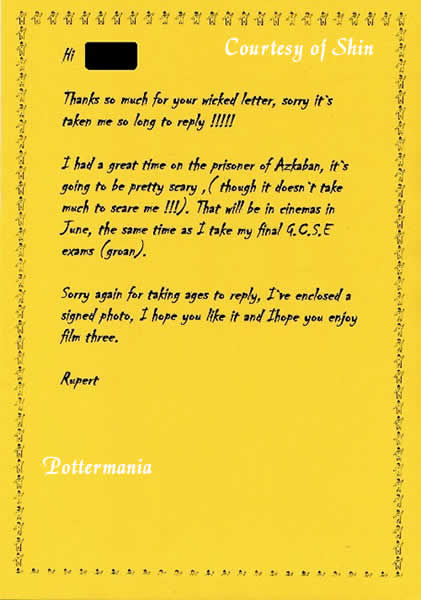 Hi
Courtesy of Shin
Thanks so much for your wicked letter, sorry it`s
taken me so long to reply !!!!!
I had a great time on the prisoner of Azkaban, it`s
going to be pretty scary ,( though it doesn`t take
much to scare me !!!). That will be in cinemas in
June, the same time as I take my final G.C.S.E
exams (groan).
Sorry again for taking ages to reply, I`ve enclosed a
signed photo, I hope you like it and Ihope you enjoy
film three.
Rupert
Pottermania